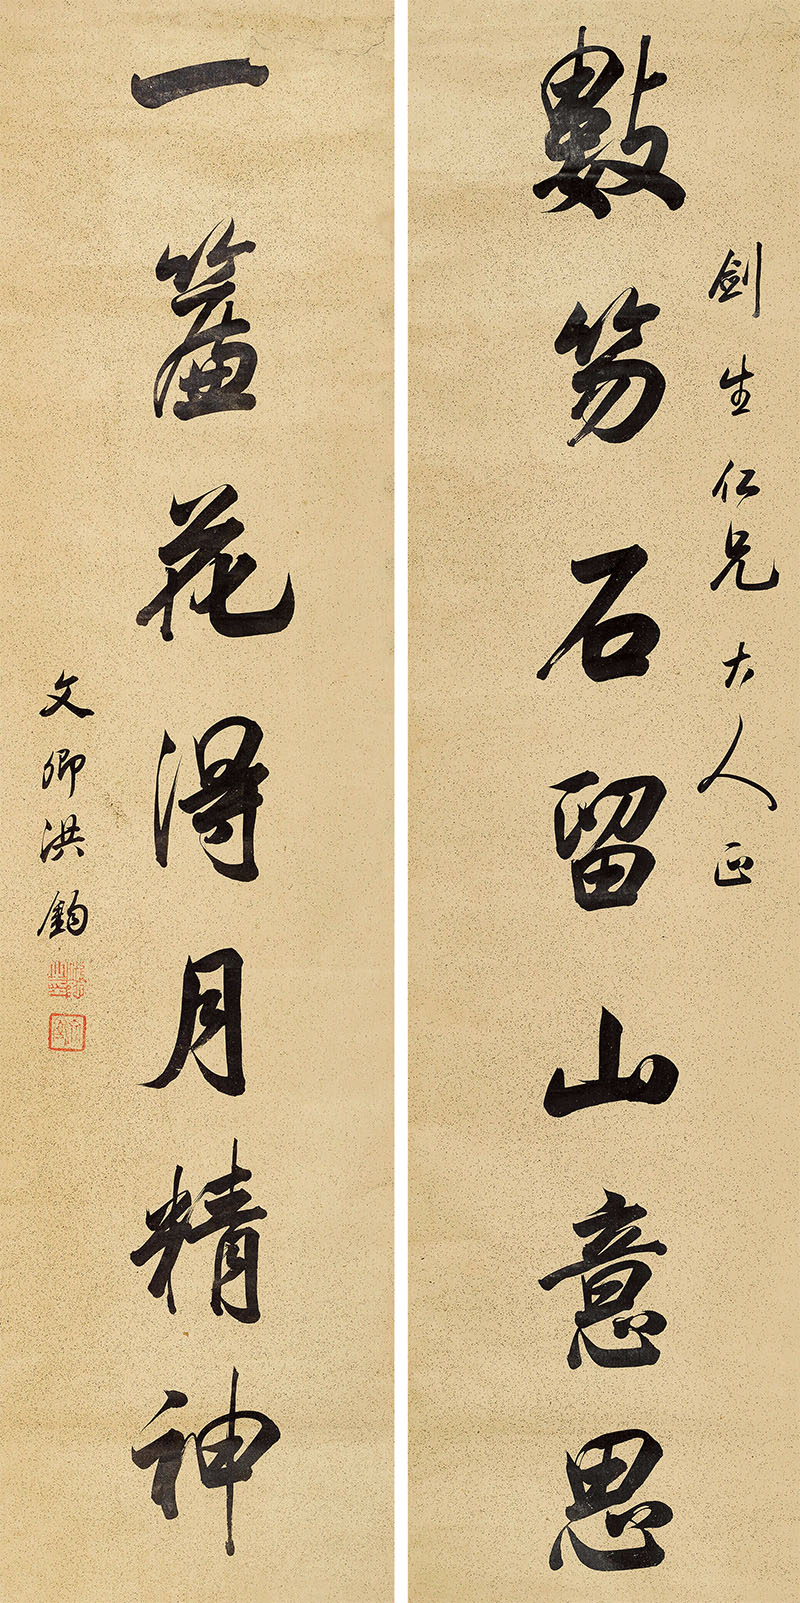 劍生仁兄大人正
數笏石留山意思
一簾花得月精神
文卿洪鈞